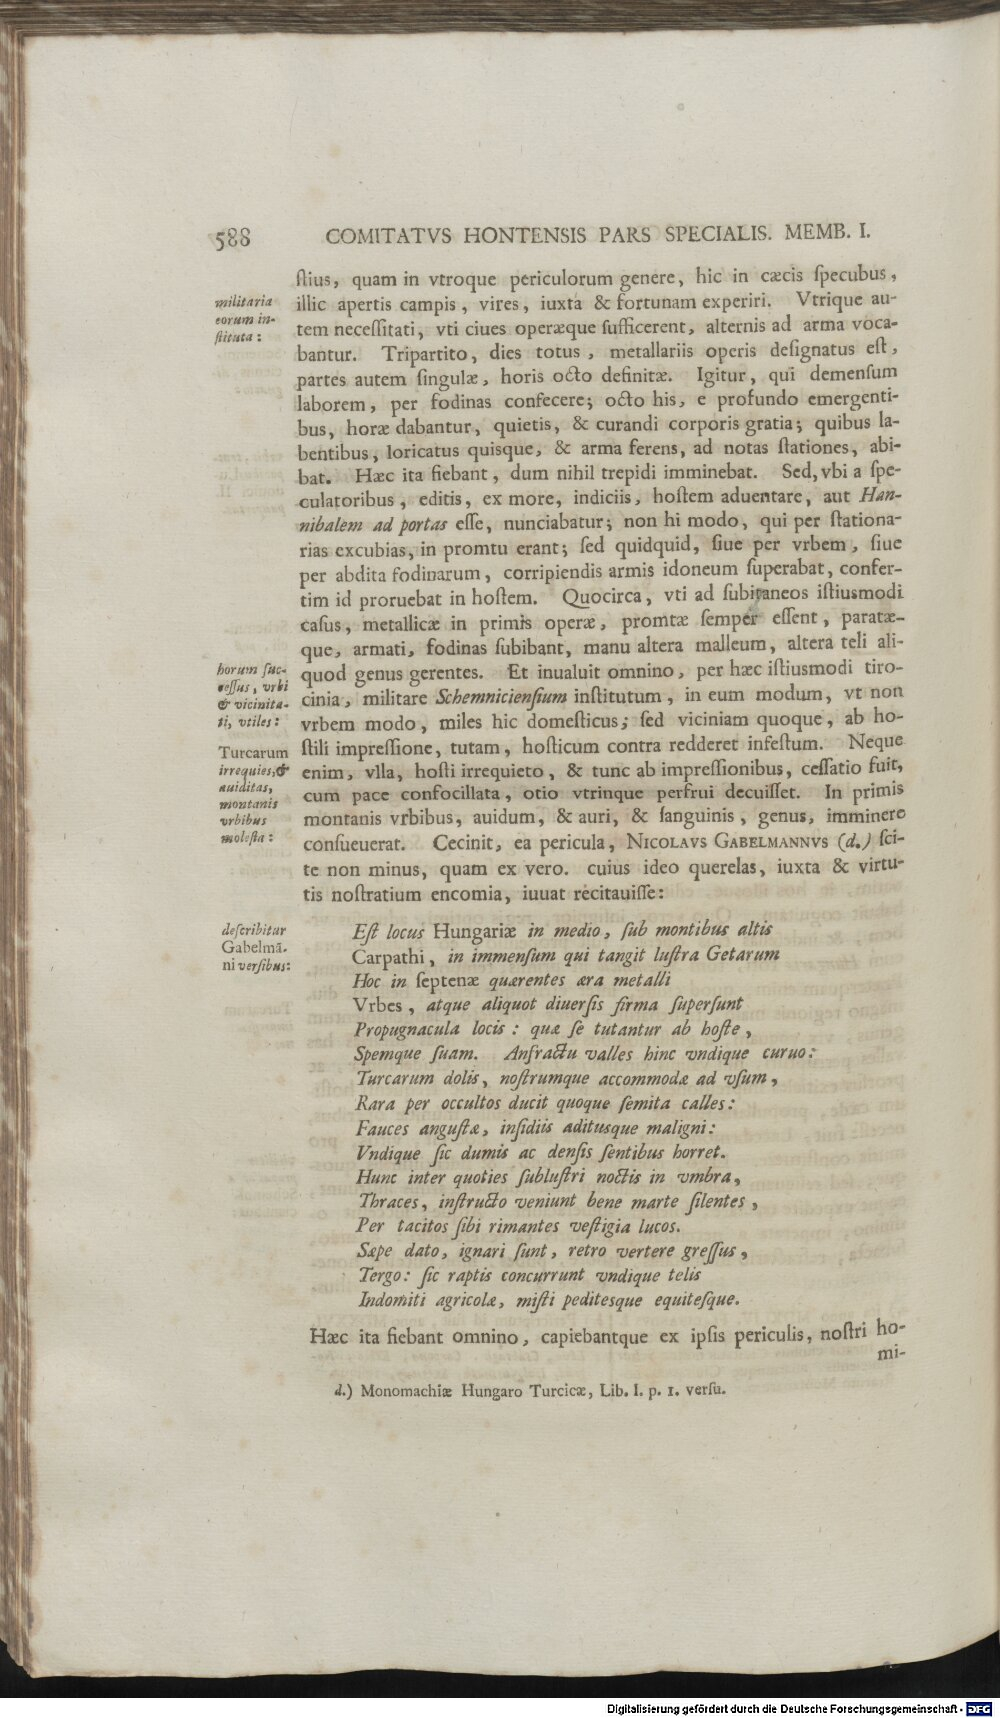 588 COMITATVS HONTENSIS PARS SPECIALIS. MEMB. I.
ſtius, quam in vtroque periculorum genere, hic in cæcis ſpecubus,
illic apertis campis, vires, iuxta & fortunam experiri. Vtrique au-
tem neceſſitati, vti ciues operæque ſufficerent, alternis ad arma voca-
bantur. Tripartito, dies totus, metallariis operis deſignatus eſt,
partes autem ſingulæ, horis octo definitæ. Igitur, qui demenſum
laborem, per fodinas confecere; octo his, e profundo emergenti-
bus, horæ dabantur, quietis, & curandi corporis gratia; quibus la-
bentibus, loricatus quisque, & arma ferens, ad notas ſtationes, abi-
bat. Hæc ita fiebant, dum nihil trepidi imminebat. Sed, vbi a ſpe-
culatoribus, editis, ex more, indiciis, hoſtem aduentare, aut Han-
nibalem ad portas eſſe, nunciabatur; non hi modo, qui per ſtationa-
rias excubias, in promtu erant; ſed quidquid, ſiue per vrbem, ſiue
per abdita fodinarum, corripiendis armis idoneum ſuperabat, confer-
tim id proruebat in hoſtem. Quocirca, vti ad ſubitaneos iſtiusmodi
caſus, metallicæ in primis operæ, promtæ ſemper eſſent, paratæ-
que, armati, fodinas ſubibant, manu altera malleum, altera teli ali-
quod genus gerentes. Et inualuit omnino, per hæc iſtiusmodi tiro-
cinia, militare Schemnicienſium inſtitutum, in eum modum, vt non
vrbem modo, miles hic domeſticus; ſed viciniam quoque, ab ho-
ſtili impreſſione, tutam, hoſticum contra redderet infeſtum. Neque
enim, vlla, hoſti irrequieto, & tunc ab impreſſionibus, ceſſatio fuit,
cum pace confocillata, otio vtrinque perfrui decuiſſet. In primis
montanis vrbibus, auidum, & auri, & ſanguinis, genus, imminere
conſueuerat. Cecinit, ea pericula, NICOLAVS GABELMANNVS (d.) ſci-
te non minus, quam ex vero. cuius ideo querelas, iuxta & virtu-
tis noſtratium encomia, iuuat recitauiſſe:
militaria
eorum in-
ſtituta:
horum ſuc-
ceſſus, vrbi
& vicinita-
ti, vtiles:
Turcarum
irrequies, &
auiditas,
montanis
vrbibus
moleſta:
deſcribitur
Gabelmā-
ni verſibus:
Eſt locus Hungariæ in medio, ſub montibus altis
Carpathi, in immenſum qui tangit luſtra Getarum
Hoc in ſeptenæ quærentes æra metalli
Vrbes, atque aliquot diuerſis firma ſuperſunt
Propugnacula locis: quæ ſe tutantur ab hoſte,
Spemque ſuam. Anfractu valles hinc vndique curuo:
Turcarum dolis, noſtrumque accommodæ ad vſum,
Rara per occultos ducit quoque ſemita calles:
Fauces anguſtæ, inſidiis aditusque maligni:
Vndique ſic dumis ac denſis ſentibus horret.
Hunc inter quoties ſubluſtri noctis in vmbra,
Thraces, inſtructo veniunt bene marte ſilentes,
Per tacitos ſibi rimantes veſtigia lucos.
Sæpe dato, ignari ſunt, retro vertere greſſus,
Tergo: ſic raptis concurrunt vndique telis
Indomiti agricolæ, miſti peditesque equiteſque.
Hæc ita fiebant omnino, capiebantque ex ipſis periculis, noſtri ho-
mi-
d.) Monomachiæ Hungaro Turcicæ, Lib. I. p. 1. verſu.
Digitalisierung gefördert durch die Deutsche Forschungsgemeinschaft - DFG